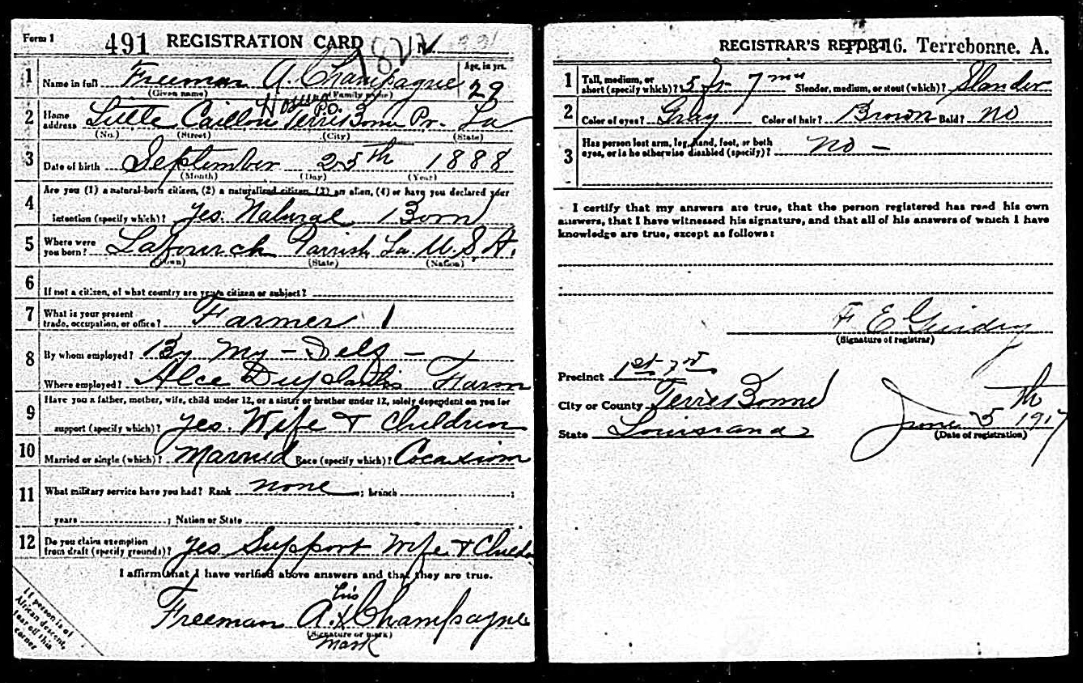 Form 1 491 REGISTRATION CARD No. 331
1 Name in full Freeman A. Champagne Age, in yrs. 29
(Given name) (Family name)
Houma
2 Home address Little Caillou P.O. TerreBonne Pr. La
(No.) (Street) (City) (State)
3 Date of birth September 25th 1888
(Month) (Day) (Year)
Are you (1) a natural-born citizen, (2) a naturalized citizen, (3) an alien, (4) or have you declared your
4 intention (specify which)? Yes Natural Born
5 Where were you born? Lafourch Parrish La. U.S.A.
(Town) (State) (Nation)
6 If not a citizen, of what country are you a citizen or subject?
7 What is your present trade, occupation, or office? Farmer 1
8 By whom employed? By My-Self-
Where employed? Alce Duplantis Farm
9 Have you a father, mother, wife, child under 12, or a sister or brother under 12, solely dependent on you for
support (specify which)? Yes. Wife & Children
10 Married or single (which)? Married Race (specify which)? Cocasion
11 What military service have you had? Rank none ; branch ;
years ; Nation or State
12 Do you claim exemption from draft (specify grounds)? Yes Support Wife & Children
I affirm that I have verified above answers and that they are true.
his
Freeman A. X Champagne
(Signature or mark)
mark
If person is of
African descent,
tear off this
corner
REGISTRAR'S REPORT 16. Terrebonne. A.
1 Tall, medium, or short (specify which)? 5 ft. 7 Slender, medium, or stout (which)? Slender
2 Color of eyes? Gray Color of hair? Brown Bald? NO
3 Has person lost arm, leg, hand, foot, or both eyes, or is he otherwise disabled (specify)? No -
I certify that my answers are true, that the person registered has read his own
answers, that I have witnessed his signature, and that all of his answers of which I have
knowledge are true, except as follows:
F E Guidry
(Signature of registrar)
Precinct 1st
City or County TerreBonne
State Louisiana
June 5th 1917
(Date of registration)